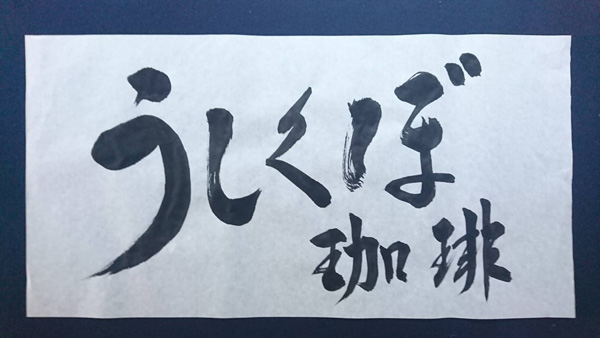 うしくぼ
珈琲